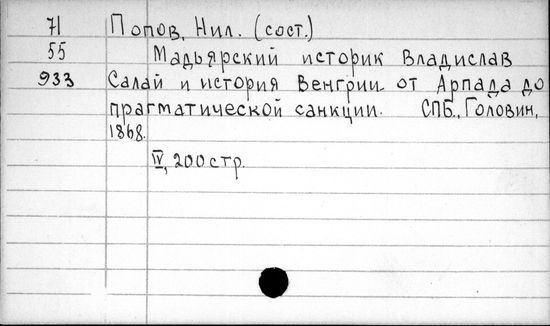 71 Попов, Нил. (сост.)
55 Мадьярский историк Владислав
933 Салай и история Венгрии от Арпада до
прагматической санкции. СПБ., Головин,
1868.
IV, 200 стр.